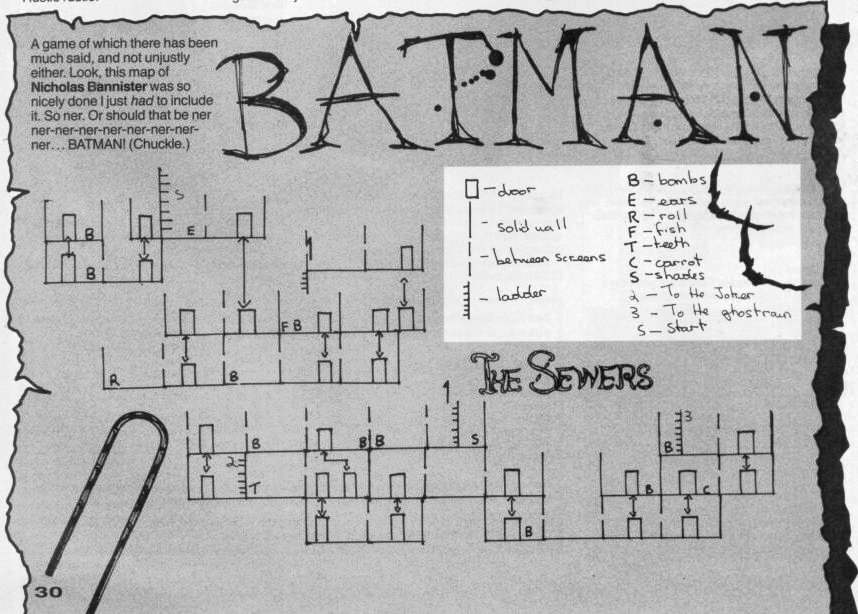 BATMAN
A game of which there has been
much said, and not unjustly
either. Look, this map of
Nicholas Bannister was so
nicely done I just had to include
it. So ner. Or should that be ner
ner-ner-ner-ner-ner-ner-ner-
ner... BATMAN! (Chuckle.)
- door
- solid wall
- between screens
- ladder
B - bombs
E - ears
R - roll
F - fish
T - teeth
C - carrot
S - shades
2 - To the Joker
3 - To the ghostrain
S - Start
S
B
E
B
1
F B
R
B
THE SEWERS
1
B
B
B
S
2
T
B
3
B
B
C
30